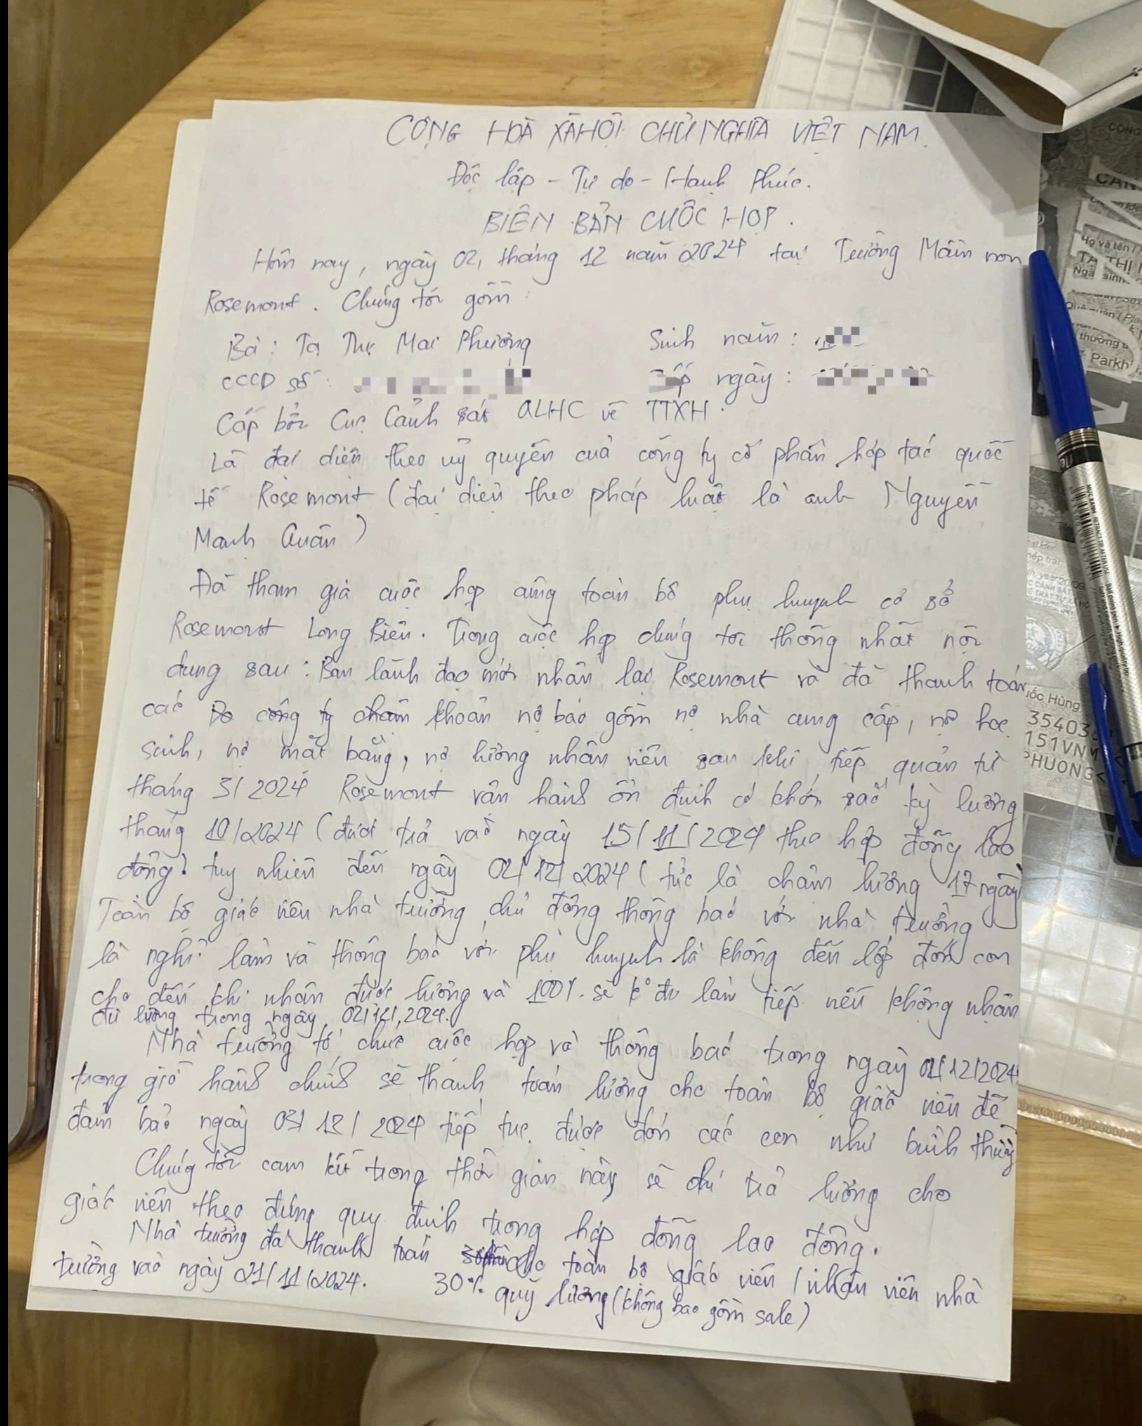 CỘNG HOÀ XÃ HỘI CHỦ NGHĨA VIỆT NAM.
Độc lập - Tự do - Hạnh Phúc.
BIÊN BẢN CUỘC HỌP.
Hôm nay, ngày 02, tháng 12 năm 2024 tại Trường Mầm non
Rosemont. Chúng tôi gồm:
Bà: Tạ Thị Mai Phương Sinh năm:
CCCD số: Cấp ngày:
Cấp bởi Cục Cảnh sát QLHC về TTXH.
Là đại diện theo uỷ quyền của công ty cổ phần hợp tác quốc
tế Rosemont (đại diện theo pháp luật là anh Nguyễn
Mạnh Quân)
Đã tham gia cuộc họp cùng toàn bộ phụ huynh cơ sở
Rosemont Long Biên. Trong cuộc họp chúng tôi thống nhất nội
dung sau: Ban lãnh đạo mới nhận lại Rosemont và đã thanh toán
các khoản nợ bao gồm nợ nhà cung cấp, nợ học
sinh, nợ mặt bằng, nợ lương nhân viên sau khi tiếp quản từ
tháng 3/2024 Rosemont vận hành ổn định có khoản kỳ lương
tháng 10/2024 (được trả vào ngày 15/11/2024 theo hợp đồng lao
động) tuy nhiên đến ngày 02/12/2024 (tức là chậm lương 17 ngày)
Toàn bộ giáo viên nhà trường chủ động thông báo với nhà trường
là nghỉ làm và thông báo với phụ huynh là không đến lớp đón con
cho đến khi nhận được lương và 100% sẽ k° đi làm tiếp nếu không nhận
đủ lương trong ngày 02/12/2024.
Nhà trường tổ chức cuộc họp và thông báo trong ngày 02/12/2024
trong giờ hành chính sẽ thanh toán lương cho toàn bộ giáo viên để
đảm bảo ngày 03/12/2024 tiếp tục được đón các con như bình thường
Chúng tôi cam kết trong thời gian này sẽ chi trả lương cho
giáo viên theo đúng quy định trong hợp đồng lao động.
Nhà trường đã thanh toán cho toàn bộ giáo viên / nhân viên nhà
trường vào ngày 21/11/2024. 30% quỹ lương (không bao gồm sale)
CÔN
CAN
Họ và tên /
TẠ THỊ
Parkh
Quốc Hùng
35403
151VNM
PHUONG<